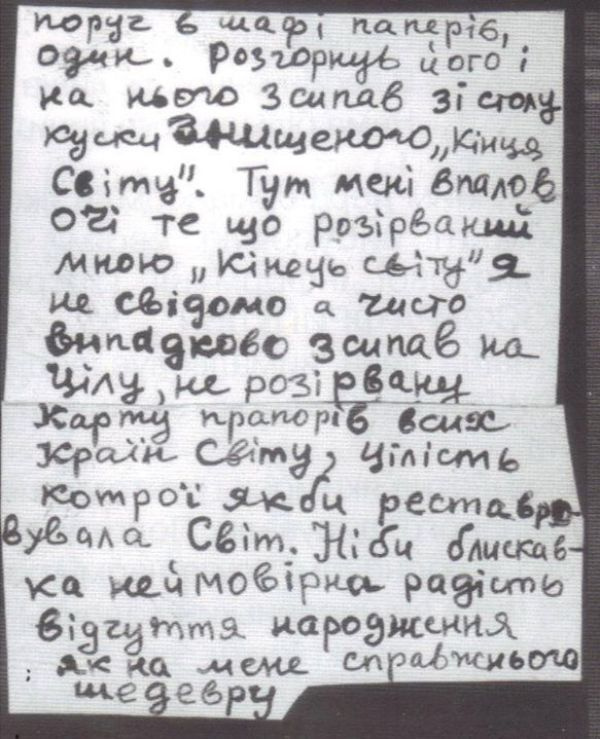 поруч в шафі паперів,
один. Розгорнув його і
на нього зсипав зі столу
куски знищеного „Кінця
Світу". Тут мені впало в
очі те що розірваний
мною „Кінець світу" я
не свідомо а чисто
випадково зсипав на
цілу, не розірвану
карту прапорів всих
країн Світу, цілість
котрої якби реставро-
вувала Світ. Ніби блискав-
ка неймовірна радість
відчуття народження
як на мене справжнього
шедевру